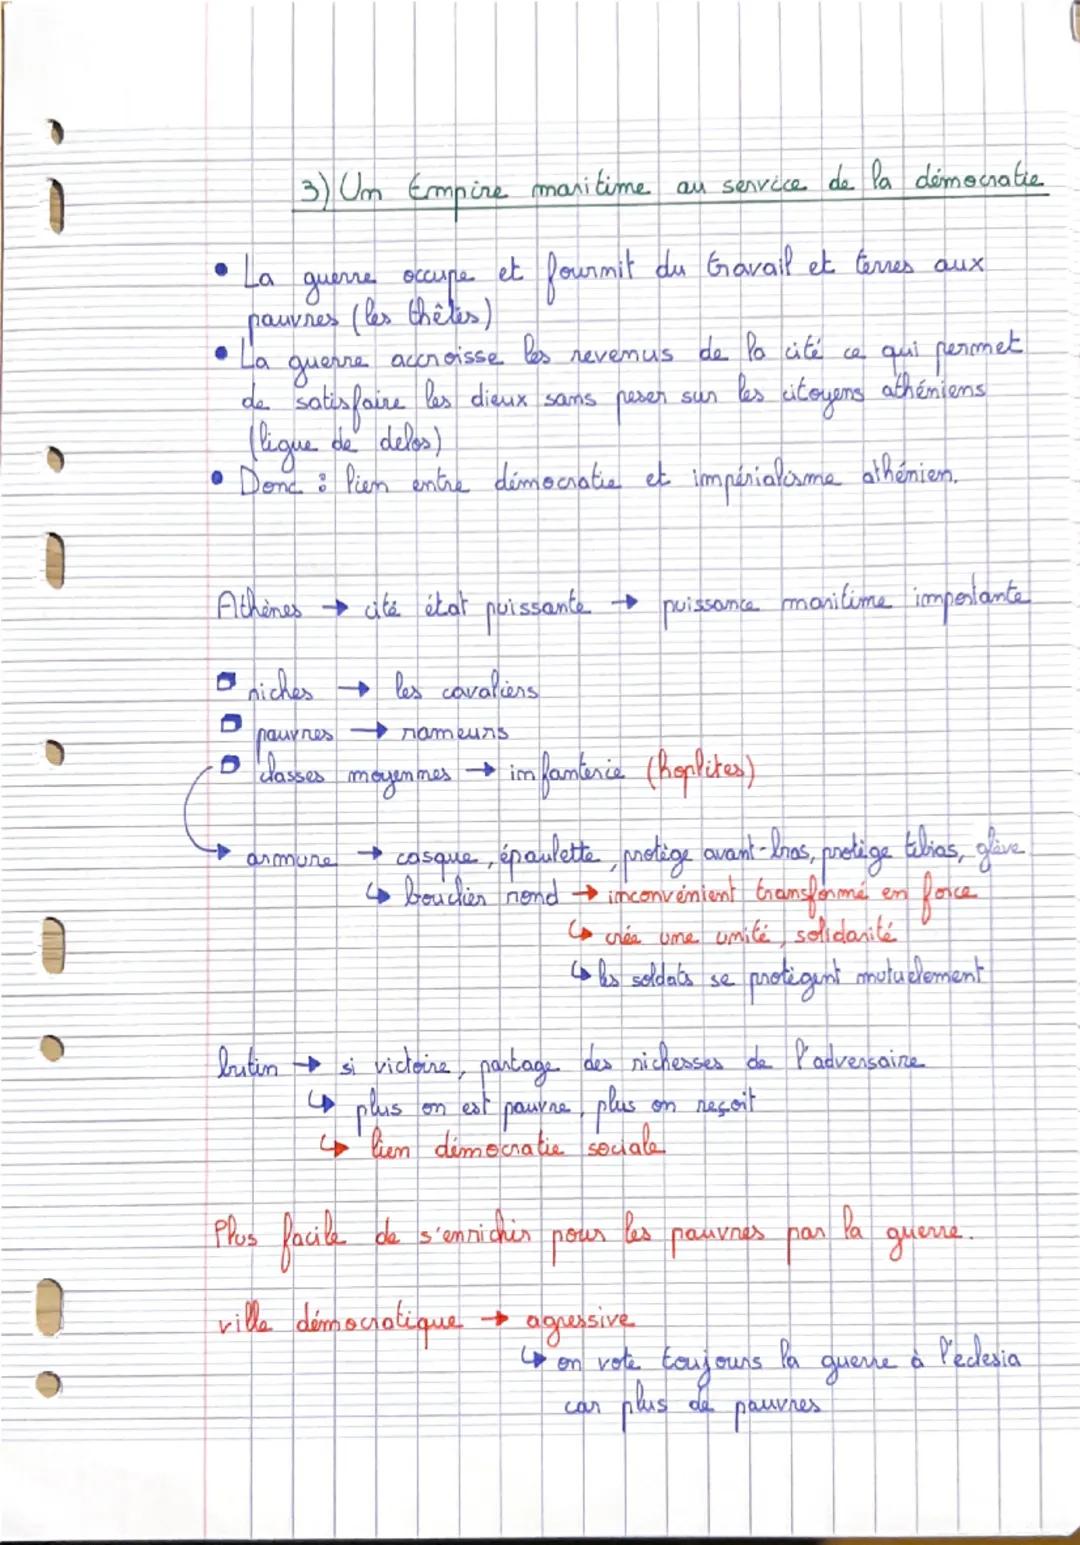 3) Un Empire maritime au service de la démocratie
• La guerre occupe et fournit du travail et terres aux
pauvres (les thètes)
• La guerre accroisse les revenus de la cité ce qui permet
de satisfaire les dieux sans peser sur les citoyens athéniens
(ligue de delos)
• Donc : lien entre démocratie et impérialisme athénien.
Athènes → cité état puissante → puissance maritime importante
riches → les cavaliers
pauvres → rameurs
classes moyennes → infanterie (hoplites)
↳ armure → casque, épaulette, protège avant-bras, protège tibias, glève
↳ bouclier rond → inconvénient transformé en force
↳ crée une unité, solidarité
↳ les soldats se protègent mutuelement
butin → si victoire, partage des richesses de l'adversaire
↳ plus on est pauvre, plus on reçoit
↳ lien démocratie sociale
Plus facile de s'enrichir pour les pauvres par la guerre.
ville démocratique → agressive
↳ on vote toujours la guerre à l'eclesia
car plus de pauvres